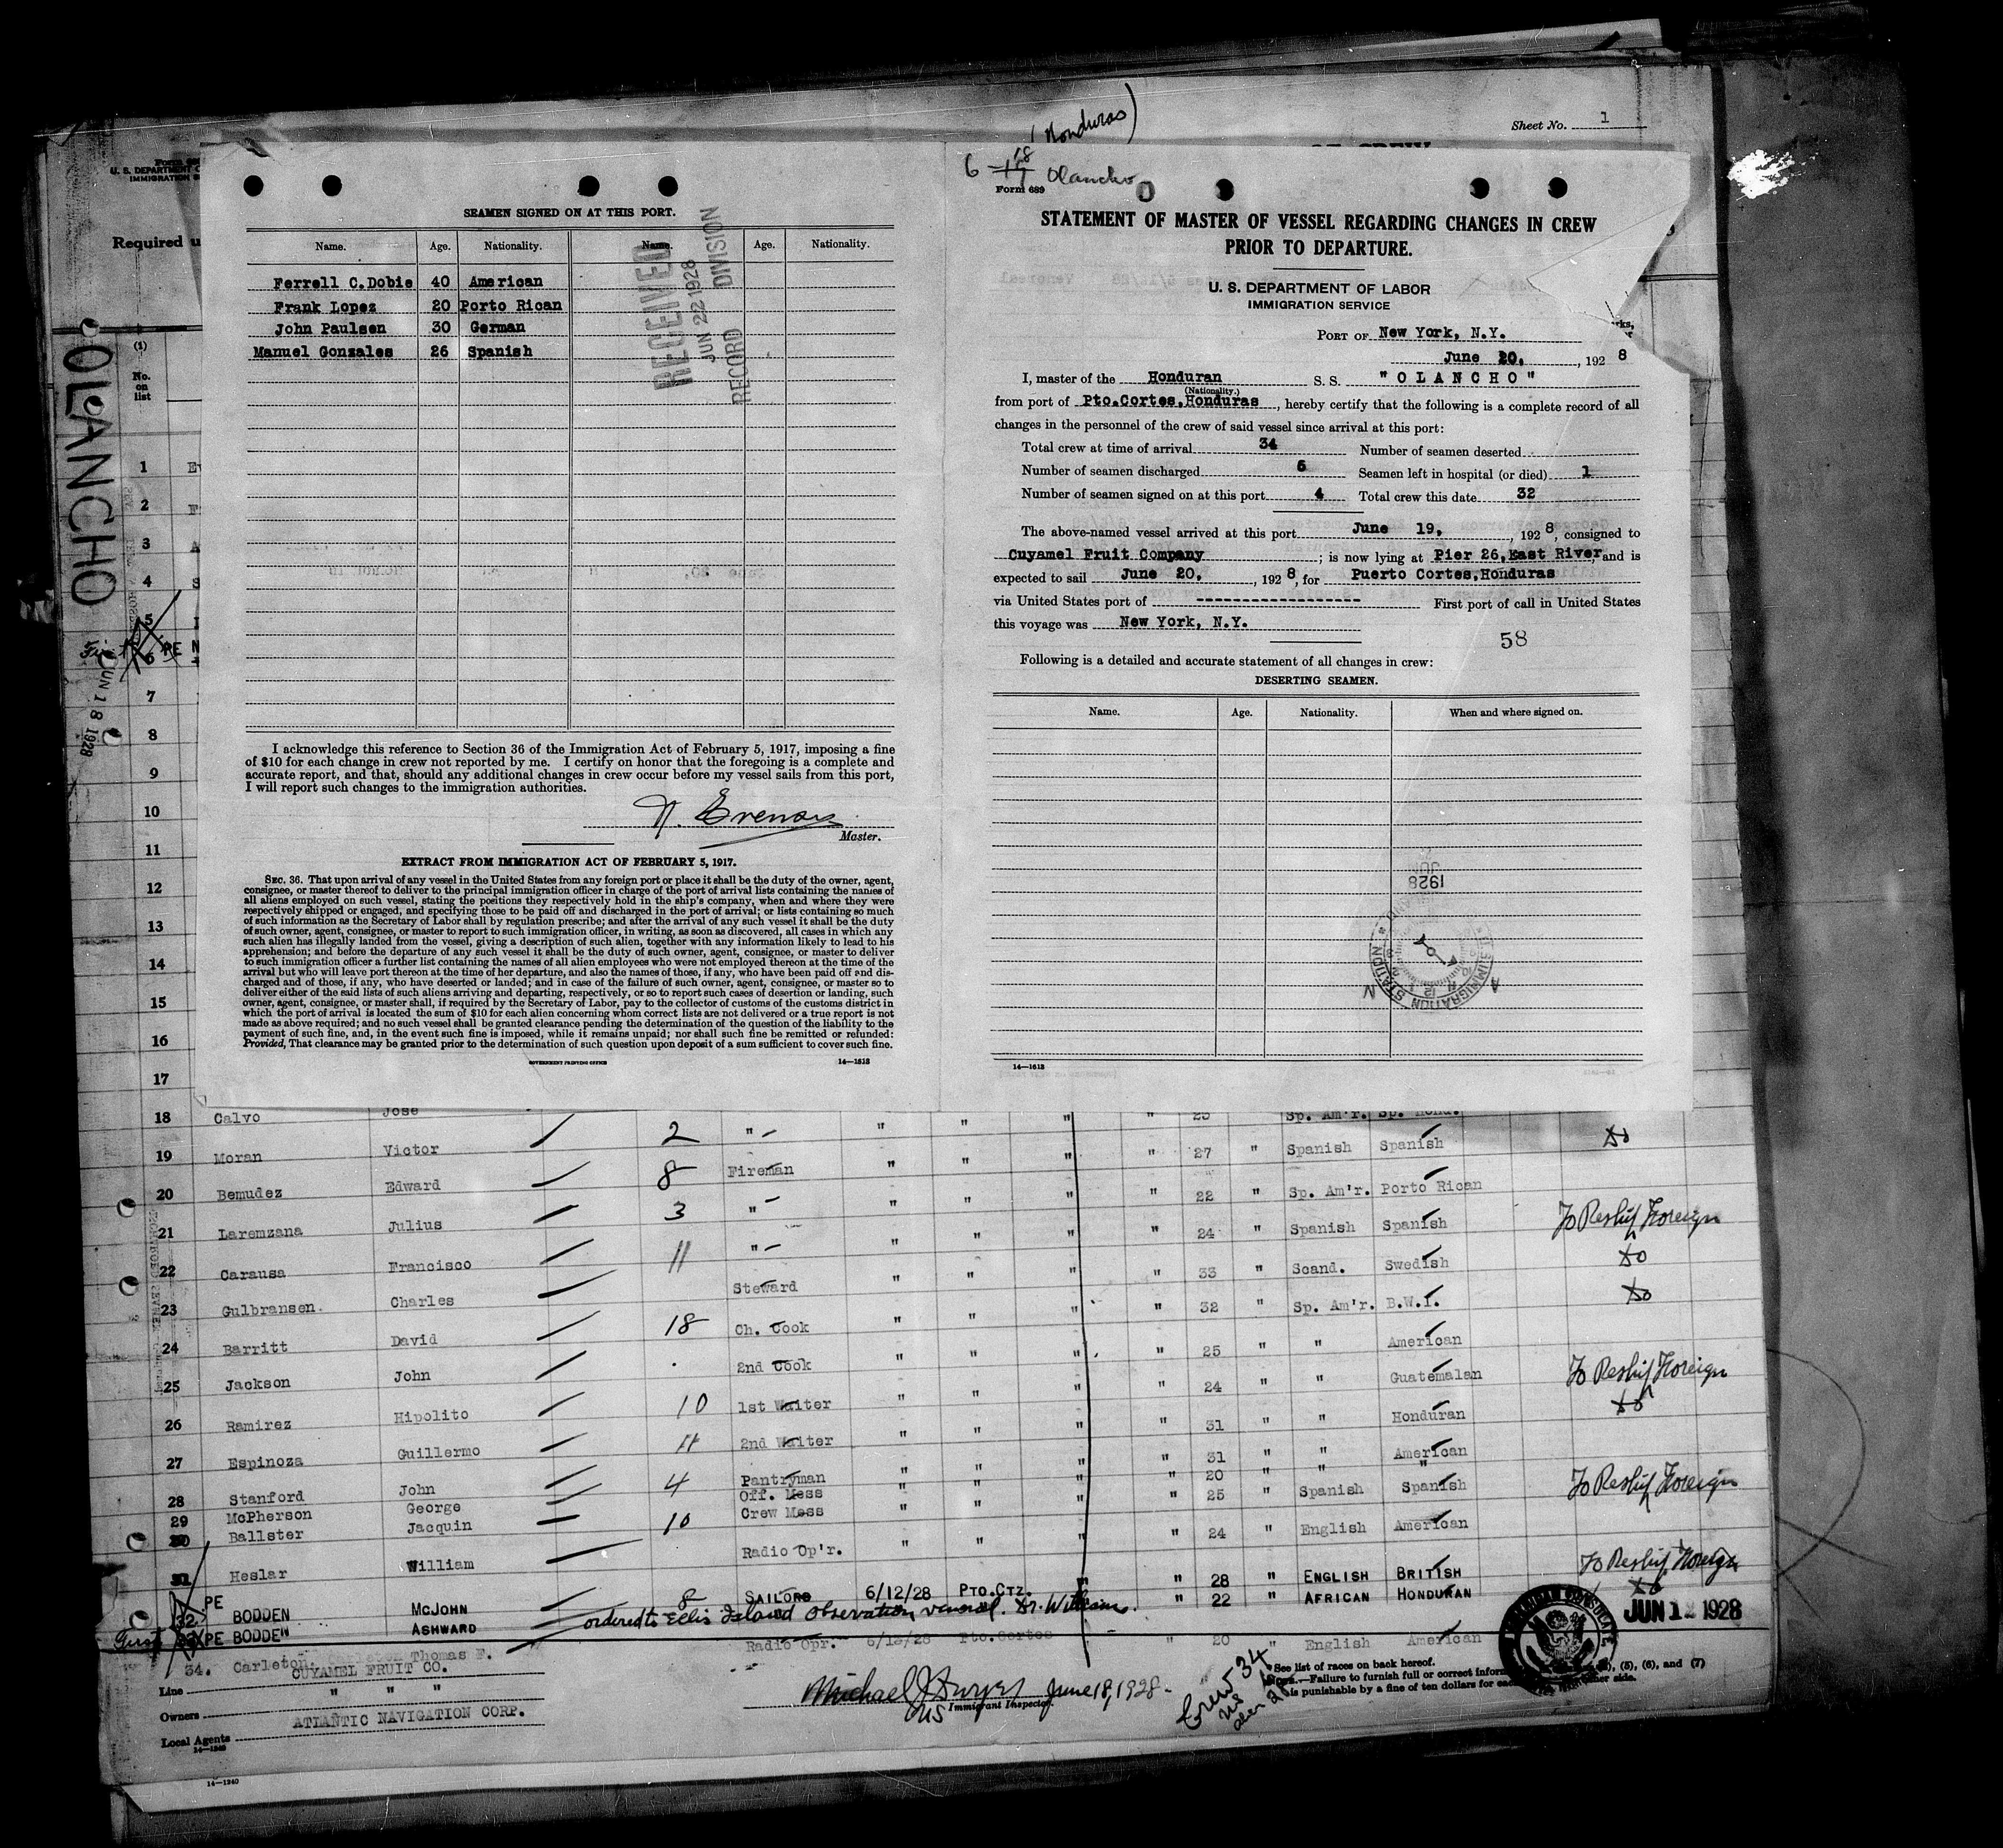 (Honduras)
Sheet No. 1
6 18 Olancho
Form 689
U. S. DEPARTMENT
IMMIGRATION
Required
(1)
No.
on
list
OLANCHO
JUN 18 1928
SEAMEN SIGNED ON AT THIS PORT.
Name. Age. Nationality. Name. Age. Nationality.
Ferrell C.Dobie 40 American
Frank Lopez 20 Porto Rican
John Paulsen 30 German
Manuel Gonzales 26 Spanish
RECEIVED
JUN 22 1928
RECORD DIVISION
I acknowledge this reference to Section 36 of the Immigration Act of February 5, 1917, imposing a fine
of $10 for each change in crew not reported by me. I certify on honor that the foregoing is a complete and
accurate report, and that, should any additional changes in crew occur before my vessel sails from this port,
I will report such changes to the immigration authorities.
Master.
EXTRACT FROM IMMIGRATION ACT OF FEBRUARY 5, 1917.
SEC. 36. That upon arrival of any vessel in the United States from any foreign port or place it shall be the duty of the owner, agent,
consignee, or master thereof to deliver to the principal immigration officer in charge of the port of arrival lists containing the names of
all aliens employed on such vessel, stating the positions they respectively hold in the ship's company, when and where they were
respectively shipped or engaged, and specifying those to be paid off and discharged in the port of arrival; or lists containing so much
of such information as the Secretary of Labor shall by regulation prescribe; and after the arrival of any such vessel it shall be the duty
of such owner, agent, consignee, or master to report to such immigration officer, in writing, as soon as discovered, all cases in which any
such alien has illegally landed from the vessel, giving a description of such alien, together with any information likely to lead to his
apprehension; and before the departure of any such vessel it shall be the duty of such owner, agent, consignee, or master to deliver
to such immigration officer a further list containing the names of all alien employees who were not employed thereon at the time of the
arrival but who will leave port thereon at the time of her departure, and also the names of those, if any, who have been paid off and dis-
charged and of those, if any, who have deserted or landed; and in case of the failure of such owner, agent, consignee, or master so to
deliver either of the said lists of such aliens arriving and departing, respectively, or so to report such cases of desertion or landing, such
owner, agent, consignee, or master shall, if required by the Secretary of Labor, pay to the collector of customs of the customs district in
which the port of arrival is located the sum of $10 for each alien concerning whom correct lists are not delivered or a true report is not
made as above required; and no such vessel shall be granted clearance pending the determination of the question of the liability to the
payment of such fine, and, in the event such fine is imposed, while it remains unpaid; nor shall such fine be remitted or refunded:
Provided, That clearance may be granted prior to the determination of such question upon deposit of a sum sufficient to cover such fine.
GOVERNMENT PRINTING OFFICE 14—1613
STATEMENT OF MASTER OF VESSEL REGARDING CHANGES IN CREW
PRIOR TO DEPARTURE.
U. S. DEPARTMENT OF LABOR
IMMIGRATION SERVICE
PORT OF New York, N.Y.
June 20, , 192 8
I, master of the Honduran S. S. "OLANCHO"
(Nationality.)
from port of Pto.Cortes,Honduras , hereby certify that the following is a complete record of all
changes in the personnel of the crew of said vessel since arrival at this port:
Total crew at time of arrival 34 Number of seamen deserted
Number of seamen discharged 5 Seamen left in hospital (or died) 1
Number of seamen signed on at this port 4 Total crew this date 32
The above-named vessel arrived at this port June 19, , 192 8, consigned to
Cuyamel Fruit Company ; is now lying at Pier 26,East River, and is
expected to sail June 20, , 192 8, for Puerto Cortes,Honduras
via United States port of ------------------ First port of call in United States
this voyage was New York, N.Y.
58
Following is a detailed and accurate statement of all changes in crew:
DESERTING SEAMEN.
Name. Age. Nationality. When and where signed on.
1928
IMMIGRATION STATION
14—1613
1
2
3
4
5
6 PE
7
8
9
10
11
12
13
14
15
16
17
18 Calvo Jose 2 " " " " " 25 Sp. Am'r. Sp. Hond.
19 Moran Victor 8 Fireman " " " " 27 " Spanish Spanish
20 Bemudez Edward 3 " " " " " 22 " Sp. Am'r. Porto Rican
21 Laremzana Julius 11 " " " " " 24 " Spanish Spanish To Reship Foreign
22 Carausa Francisco Steward " " " " 33 " Scand. Swedish
23 Gulbransen. Charles 18 Ch. Cook " " " " 32 " Sp. Am'r. B.W.I.
24 Barritt David 2nd Cook " " " " 25 " " American
25 Jackson John 10 1st Waiter " " " " 24 " " Guatemalan To Reship Foreign
26 Ramirez Hipolito 11 2nd Waiter " " " " 31 " " Honduran
27 Espinoza Guillermo 4 Pantryman " " " " 31 " " American
28 Stanford John Off. Mess " " " " 20 " " "
29 McPherson George 10 Crew Mess " " " " 25 " Spanish Spanish To Reship Foreign
30 Ballster Jacquin Radio Op'r. " " " 24 " English American
31 Heslar William
32 PE BODDEN McJOHN 2 SAILORS 6/12/28 PTO.CTZ. " " 28 " ENGLISH BRITISH To Reship Foreign
33 PE BODDEN ASHWARD ordered to Ellis Island Observation venereal. Dr. Williams. " 22 " AFRICAN HONDURAN
34. Carleton Thomas F. Radio Opr. 6/12/28 Pto.Cortes " 20 " English American
JUN 12 1928
Line CUYAMEL FRUIT CO.
Owners " " "
Local Agents ATLANTIC NAVIGATION CORP.
14—1240
Michael J Dwyer June 18, 1928
Immigrant Inspector.
Crew 34
US 6
Alien 28
See list of races on back hereof.
NOTE.—Failure to furnish full or correct (5), (6), and (7)
is punishable by a fine of ten dollars for each other side.
14—1240